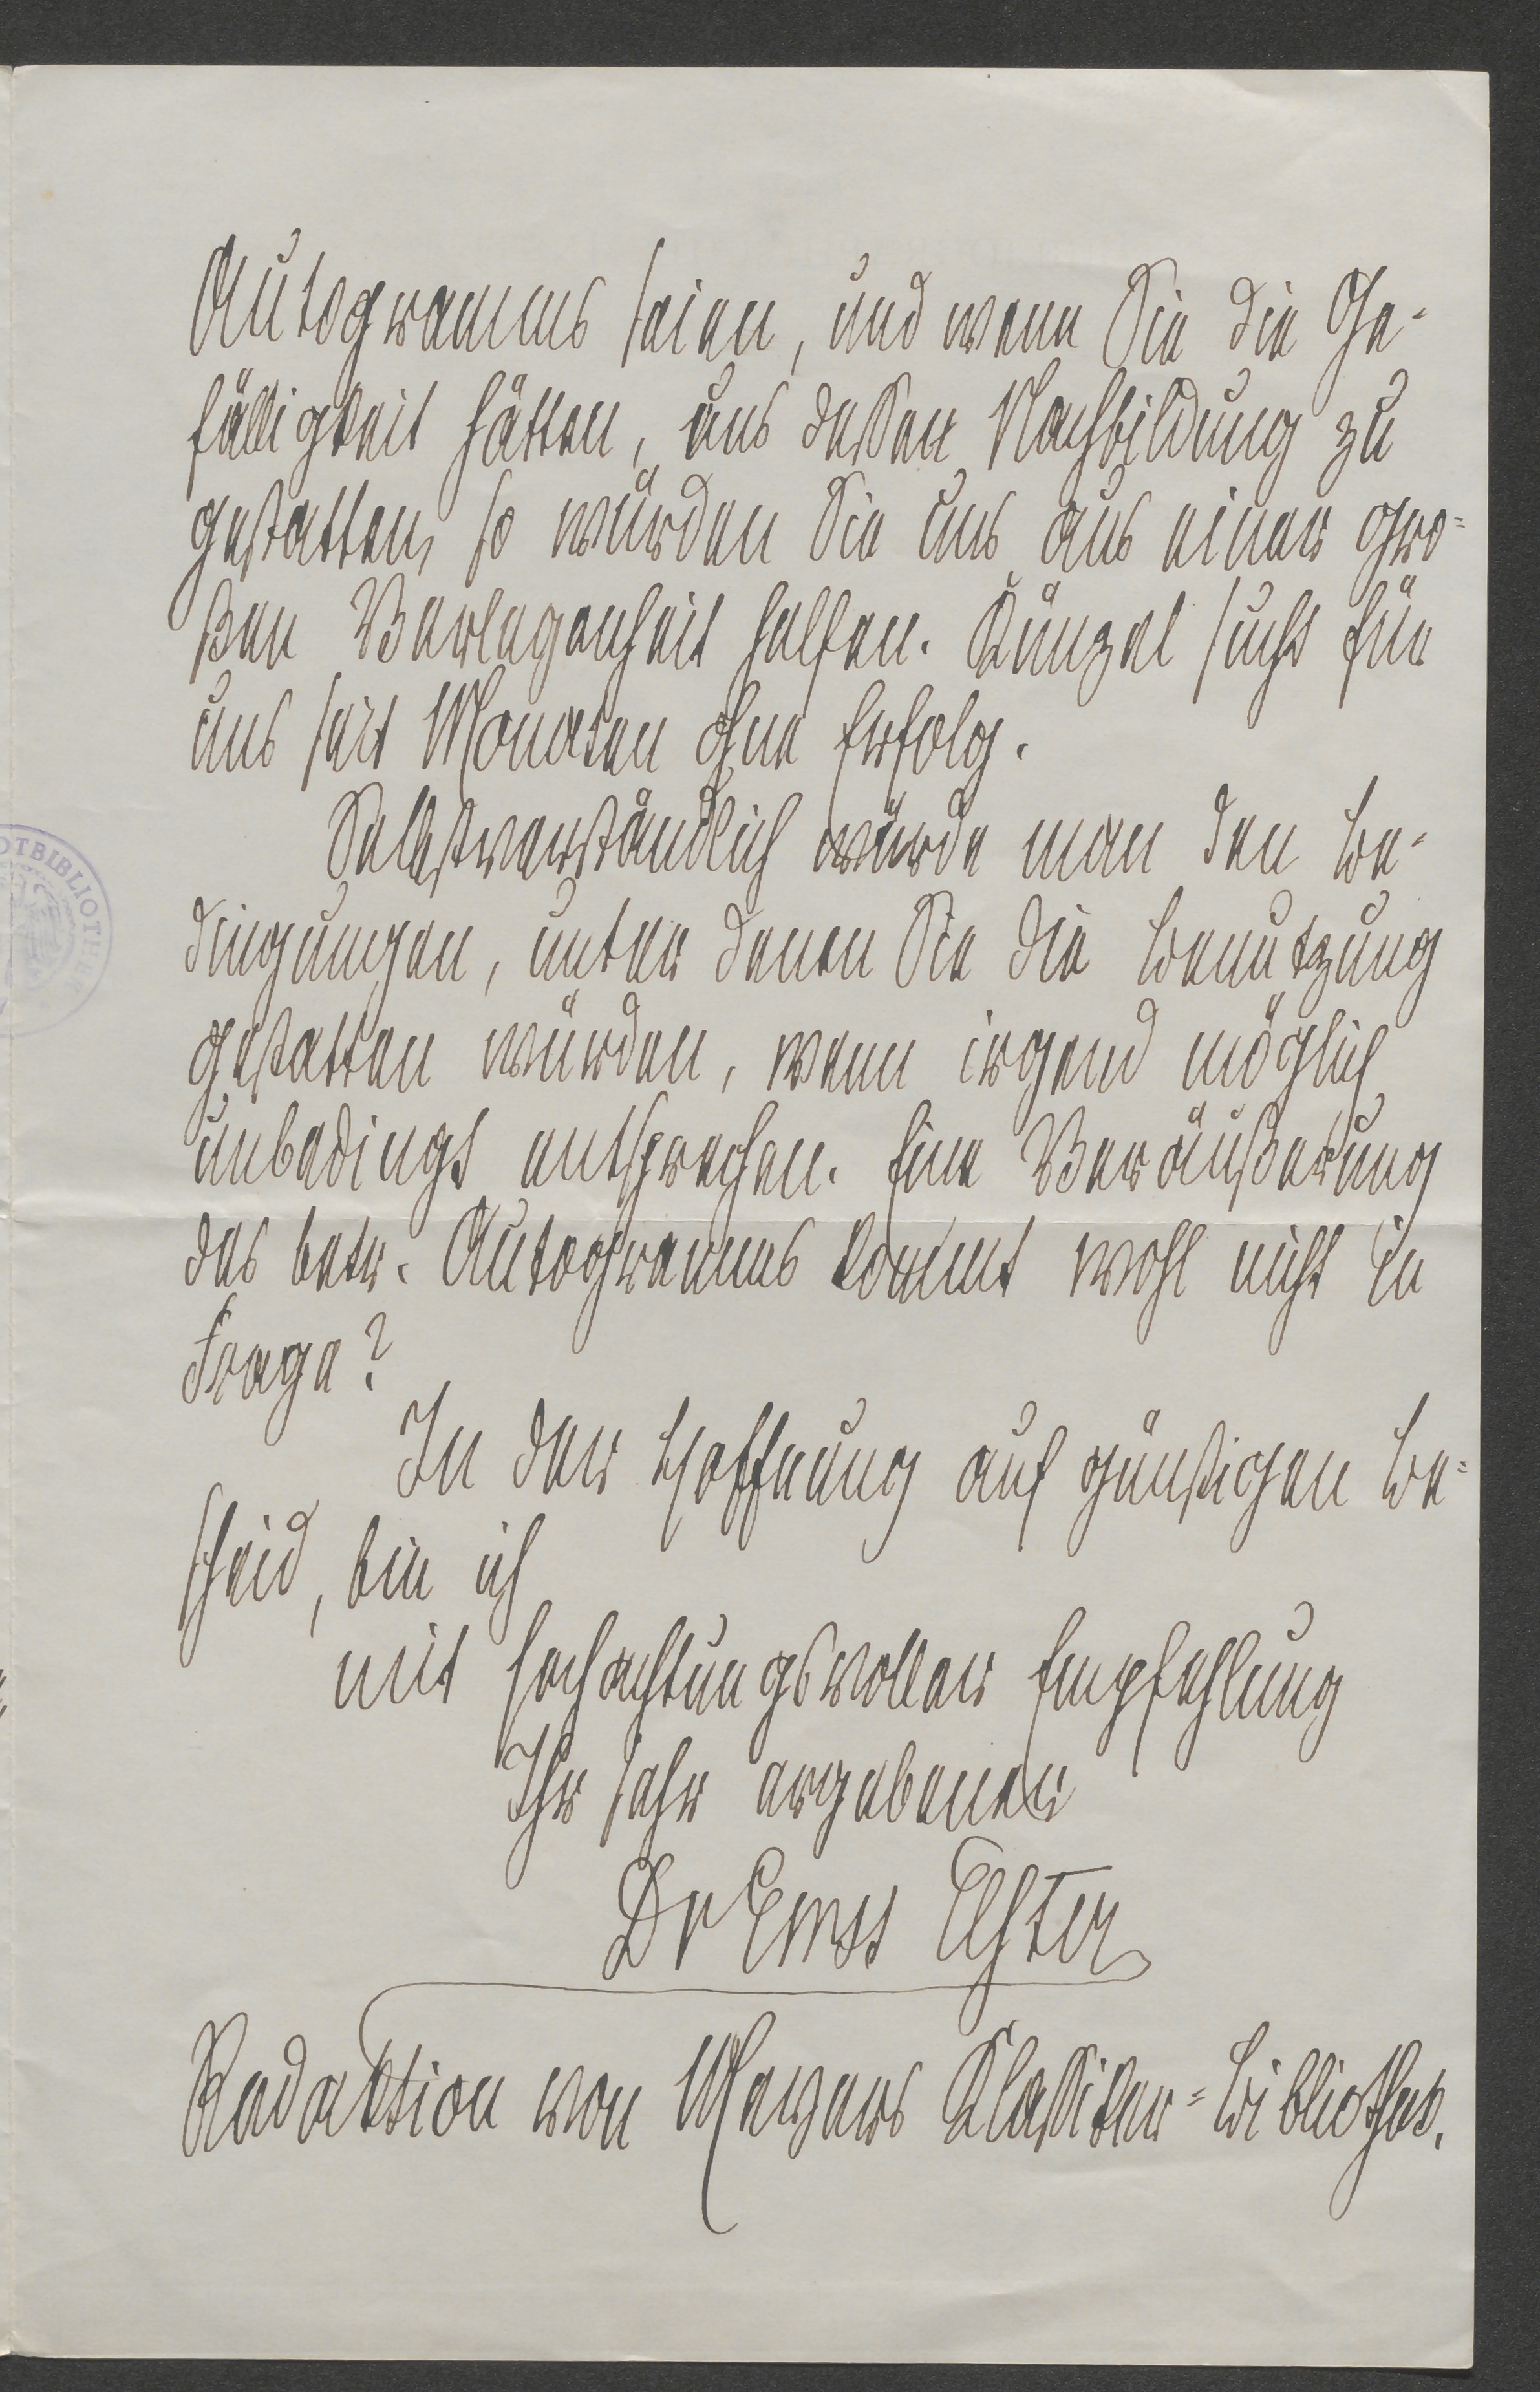 Autogramms seien, und wenn Sie die Ge-
fälligkeit hätten, uns dessen Nachbildung zu
gestatten, so würden Sie uns aus einer gro-
ßen Verlegenheit helfen. Künzel sucht für
uns seit Monaten ohne Erfolg.
Selbstverständlich würde man den Be-
dingungen, unter denen Sie die Benutzung
gestatten würden, wenn irgend möglich
unbedingt entsprechen. Eine Veräußerung
des betr. Autogramms kommt wohl nicht in
Frage?
In der Hoffnung auf günstigen Be-
scheid, bin ich
mit hochachtungsvoller Empfehlung
Ihr sehr ergebener
Dr Ernst Elster
Redaktion von Meyers Klassiker-Bibliothek.